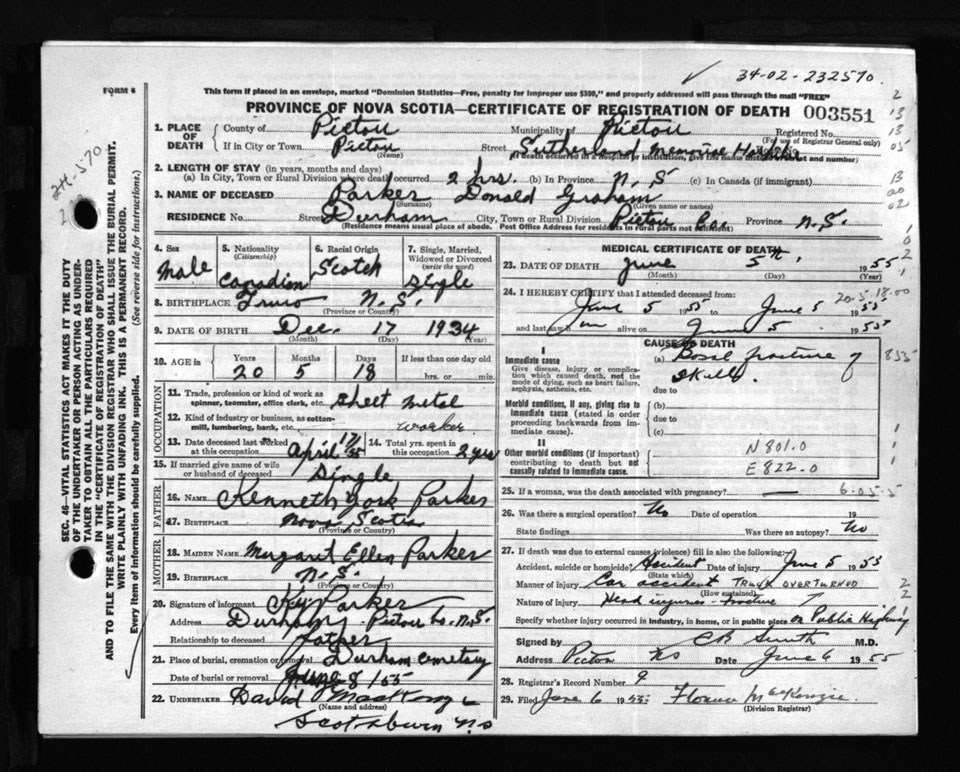 34-02-232570.
FORM 6
This form if placed in an envelope, marked "Dominion Statistics—Free, penalty for improper use $300," and properly addressed will pass through the mail "FREE"
PROVINCE OF NOVA SCOTIA—CERTIFICATE OF REGISTRATION OF DEATH 003551
1. PLACE OF DEATH
County of Pictou Municipality of Pictou Registered No.
(For use of Registrar General only)
If in City or Town Pictou Street Sutherland Memorial
(Name) (If death occurred in a hospital or institution, give the name instead of street and number)
2. LENGTH OF STAY (in years, months and days)
(a) In City, Town or Rural Division where death occurred 2 hrs. (b) In Province N.S (c) In Canada (if immigrant)
3. NAME OF DECEASED Parker Donald Graham
(Surname) (Given name or names)
RESIDENCE No. Street Durham City, Town or Rural Division Pictou Co. Province N.S.
(Residence means usual place of abode. Post Office Address for residents in rural parts not sufficient)
4. Sex Male
5. Nationality (Citizenship) Canadian
6. Racial Origin Scotch
7. Single, Married, Widowed or Divorced (write the word) Single
8. BIRTHPLACE Truro N.S.
(Province or Country)
9. DATE OF BIRTH Dec. 17 1934
(Month) (Day) (Year)
10. AGE in Years Months Days If less than one day old
20 5 18 hrs. or min.
OCCUPATION
11. Trade, profession or kind of work as spinner, teamster, office clerk, etc. Sheet Metal
12. Kind of industry or business, as cotton-mill, lumbering, bank, etc. worker
13. Date deceased last worked at this occupation April 17/55
14. Total yrs. spent in this occupation 2 yrs
15. If married give name of wife or husband of deceased Single
FATHER
16. NAME Kenneth York Parker
17. BIRTHPLACE Nova Scotia
(Province or Country)
MOTHER
18. MAIDEN NAME Margaret Ellen Parker
19. BIRTHPLACE N.S.
(Province or Country)
20. Signature of informant K.Y. Parker
Address Durham, Pictou Co. N.S.
Relationship to deceased father
21. Place of burial, cremation or removal Durham cemetery
Date of burial or removal June 8/55
22. UNDERTAKER David MacKenzie
(Name and address)
Scotsburn N.S
MEDICAL CERTIFICATE OF DEATH
23. DATE OF DEATH June 5th, 1955
(Month) (Day) (Year)
24. I HEREBY CERTIFY that I attended deceased from:
20-5-18-00
June 5 1955 to June 5 1955
and last saw him alive on June 5 1955
CAUSE OF DEATH
I
Immediate cause
Give disease, injury or complication which caused death, not the mode of dying, such as heart failure, asphyxia, asthenia, etc.
(a) Basal fracture of Skull.
due to
Morbid conditions, if any, giving rise to immediate cause (stated in order proceeding backwards from immediate cause).
(b)
due to
(c)
II
Other morbid conditions (if important) contributing to death but not causally related to immediate cause.
N 801.0
E 822.0
835
25. If a woman, was the death associated with pregnancy? —
6-05-5
26. Was there a surgical operation? No Date of operation 19
State findings Was there an autopsy? No
27. If death was due to external causes (violence) fill in also the following:
Accident, suicide or homicide? Accident Date of injury June 5 1955
(State which)
Manner of injury Car accident TRUCK OVERTURNED
(How sustained)
Nature of injury Head injuries - fracture
Specify whether injury occurred in industry, in home, or in public place on Public Highway
Signed by C B Smith M.D.
Address Pictou NS Date June 6 1955
28. Registrar's Record Number 9
29. Filed June 6 1955 MacKenzie
(Division Registrar)
SEC. 46—VITAL STATISTICS ACT MAKES IT THE DUTY OF THE UNDERTAKER OR PERSON ACTING AS UNDERTAKER TO OBTAIN ALL THE PARTICULARS REQUIRED IN THE "CERTIFICATE OF REGISTRATION OF DEATH" AND TO FILE THE SAME WITH THE DIVISION REGISTRAR WHO SHALL ISSUE THE BURIAL PERMIT.
WRITE PLAINLY WITH UNFADING INK. THIS IS A PERMANENT RECORD.
Every item of information should be carefully supplied. (See reverse side for instructions.)